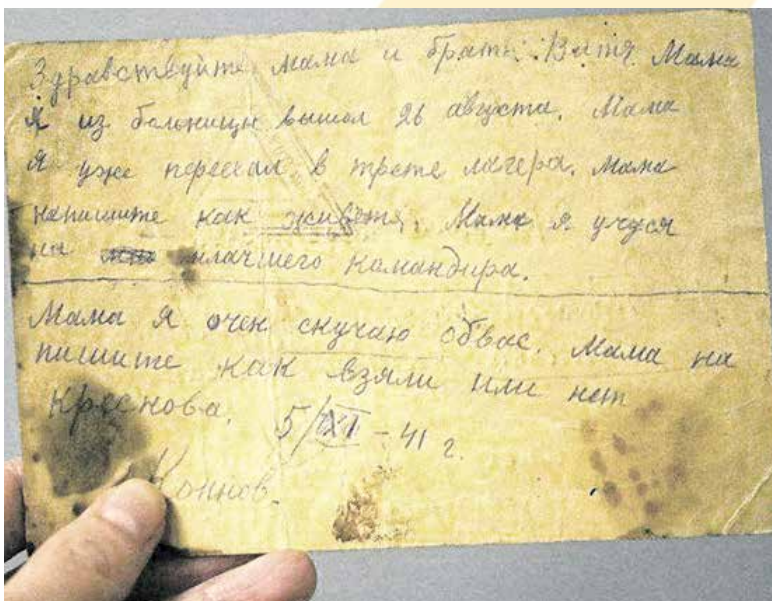 Здравствуйте мама и братец Витя. Мама
я из больницы вышел 26 августа. Мама
я уже переехал в трете лагера. Мама
напишите как живете. Мама я учуся
на млачшего командира.
Мама я очен скучаю обвас. Мама на
пишите как взяли или нет
Креснова. 5/XI - 41 г.
Коннов.